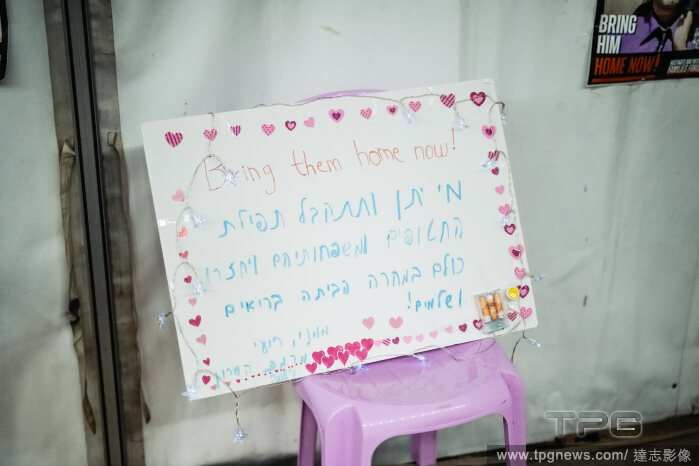 BRING
HIM
HOME NOW!
Bring them home now!
מי יתן ותתקבל תפילת
החטופים ומשפחותיהם ויחזרו
כולם במהרה הביתה בריאים
ושלמים!
TPG
www.tpgnews.com/ 達志影像